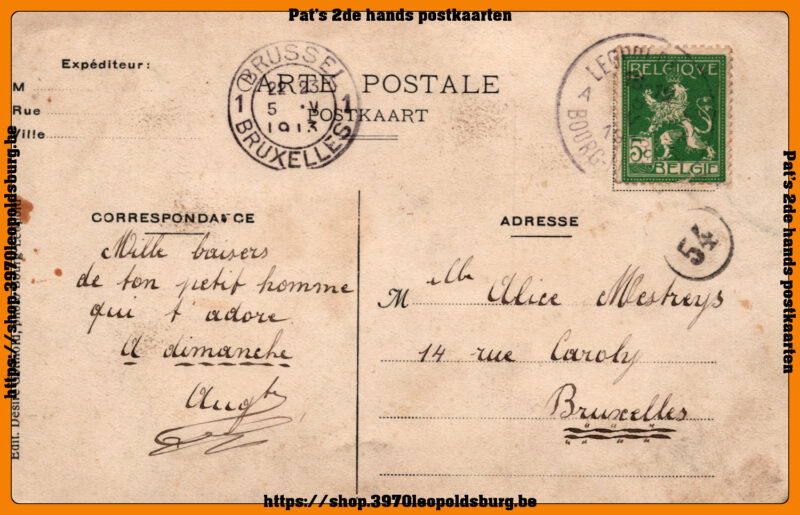 Pat's 2de hands postkaarten
Expéditeur:
M
Rue
Ville
CARTE POSTALE
POSTKAART
BRUSSEL
22-23
1 5 IV 1
1913
BRUXELLES
BOURG-
BELGIQUE
5c
BELGIË
54
CORRESPONDANCE
Mille baisers
de ton petit homme
qui t'adore
A dimanche
Augte
ADRESSE
Melle Alice Mestreys
14 rue Caroly
Bruxelles
Edit. Désiré
https://shop.3970leopoldsburg.be
Pat's 2de hands postkaarten
https://shop.3970leopoldsburg.be